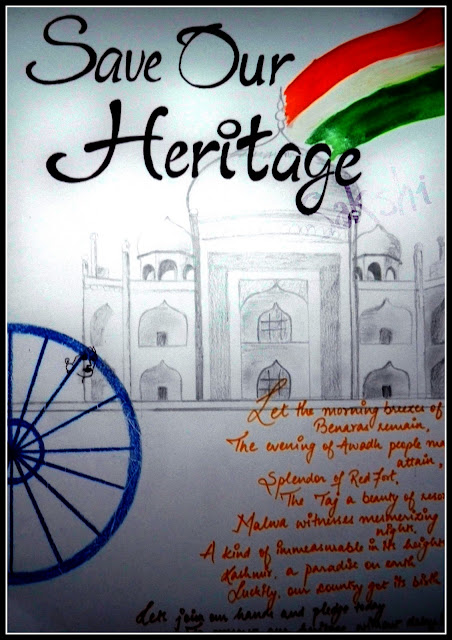 Save Our
Heritage
akshi
Let the morning breezes of
Benaras remain,
The evening of Awadh people ma
attain,
Splendor of Red Fort,
The Taj a beauty of
Malwa witnesses mesmerizing
nights,
A kind of immeasurable in its height
Kashmir, a paradise on earth
Luckily, our country got its birth
Let's join our hands and pledge today
our heritage without delay